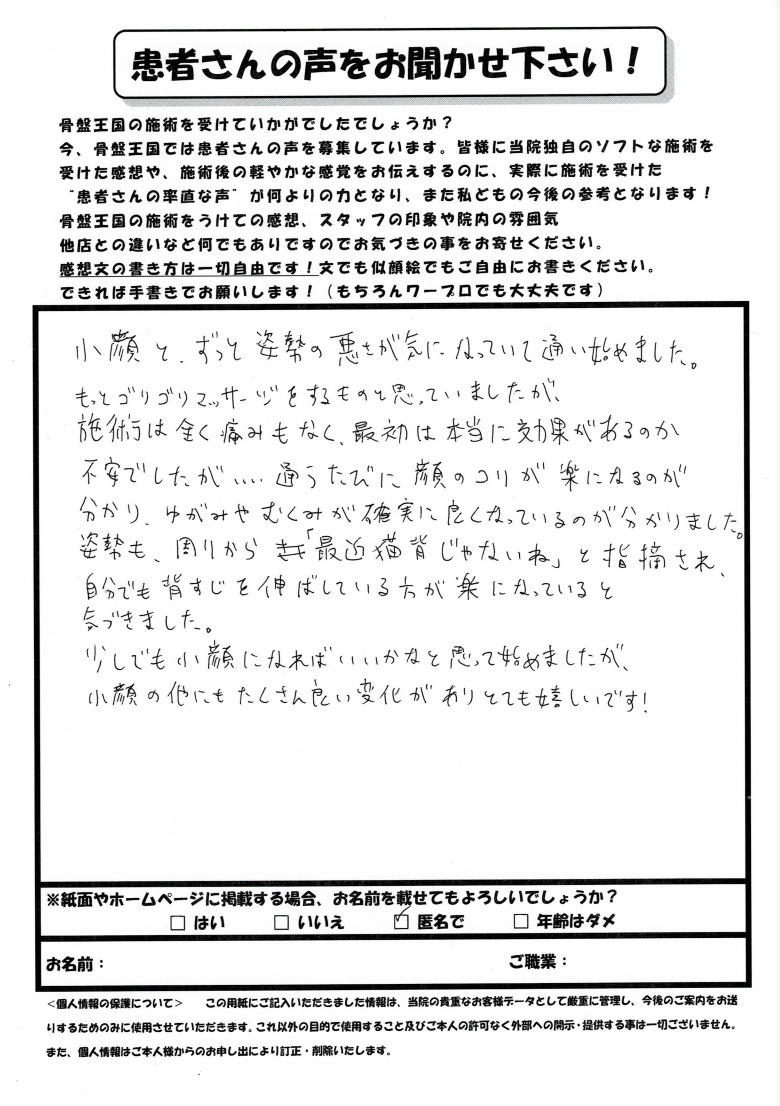 患者さんの声をお聞かせ下さい！
骨盤王国の施術を受けていかがでしたでしょうか？
今、骨盤王国では患者さんの声を募集しています。皆様に当院独自のソフトな施術を
受けた感想や、施術後の軽やかな感覚をお伝えするのに、実際に施術を受けた
“患者さんの率直な声”が何よりの力となり、また私どもの今後の参考となります！
骨盤王国の施術をうけての感想、スタッフの印象や院内の雰囲気
他店との違いなど何でもありですのでお気づきの事をお寄せください。
感想文の書き方は一切自由です！文でも似顔絵でもご自由にお書きください。
できれば手書きでお願いします！（もちろんワープロでも大丈夫です）
小顔と、ずっと姿勢の悪さが気になっていて通い始めました。
もっとゴリゴリマッサージをするものと思っていましたが、
施術は全く痛みもなく、最初は本当に効果があるのか
不安でしたが‥‥通うたびに顔のコリが楽になるのが
分かり、ゆがみやむくみが確実に良くなっているのが分かりました。
姿勢も、周りから「最近猫背じゃないね」と指摘され、
自分でも背すじを伸ばしている方が楽になっていると
気づきました。
少しでも小顔になればいいかなと思って始めましたが、
小顔の他にもたくさん良い変化がありとても嬉しいです！
※紙面やホームページに掲載する場合、お名前を載せてもよろしいでしょうか？
□ はい □ いいえ ☑ 匿名で □ 年齢はダメ
お名前： ご職業：
＜個人情報の保護について＞ この用紙にご記入いただきました情報は、当院の貴重なお客様データとして厳重に管理し、今後のご案内をお送
りするためのみに使用させていただきます。これ以外の目的で使用すること及びご本人の許可なく外部への開示・提供する事は一切ございません。
また、個人情報はご本人様からのお申し出により訂正・削除いたします。